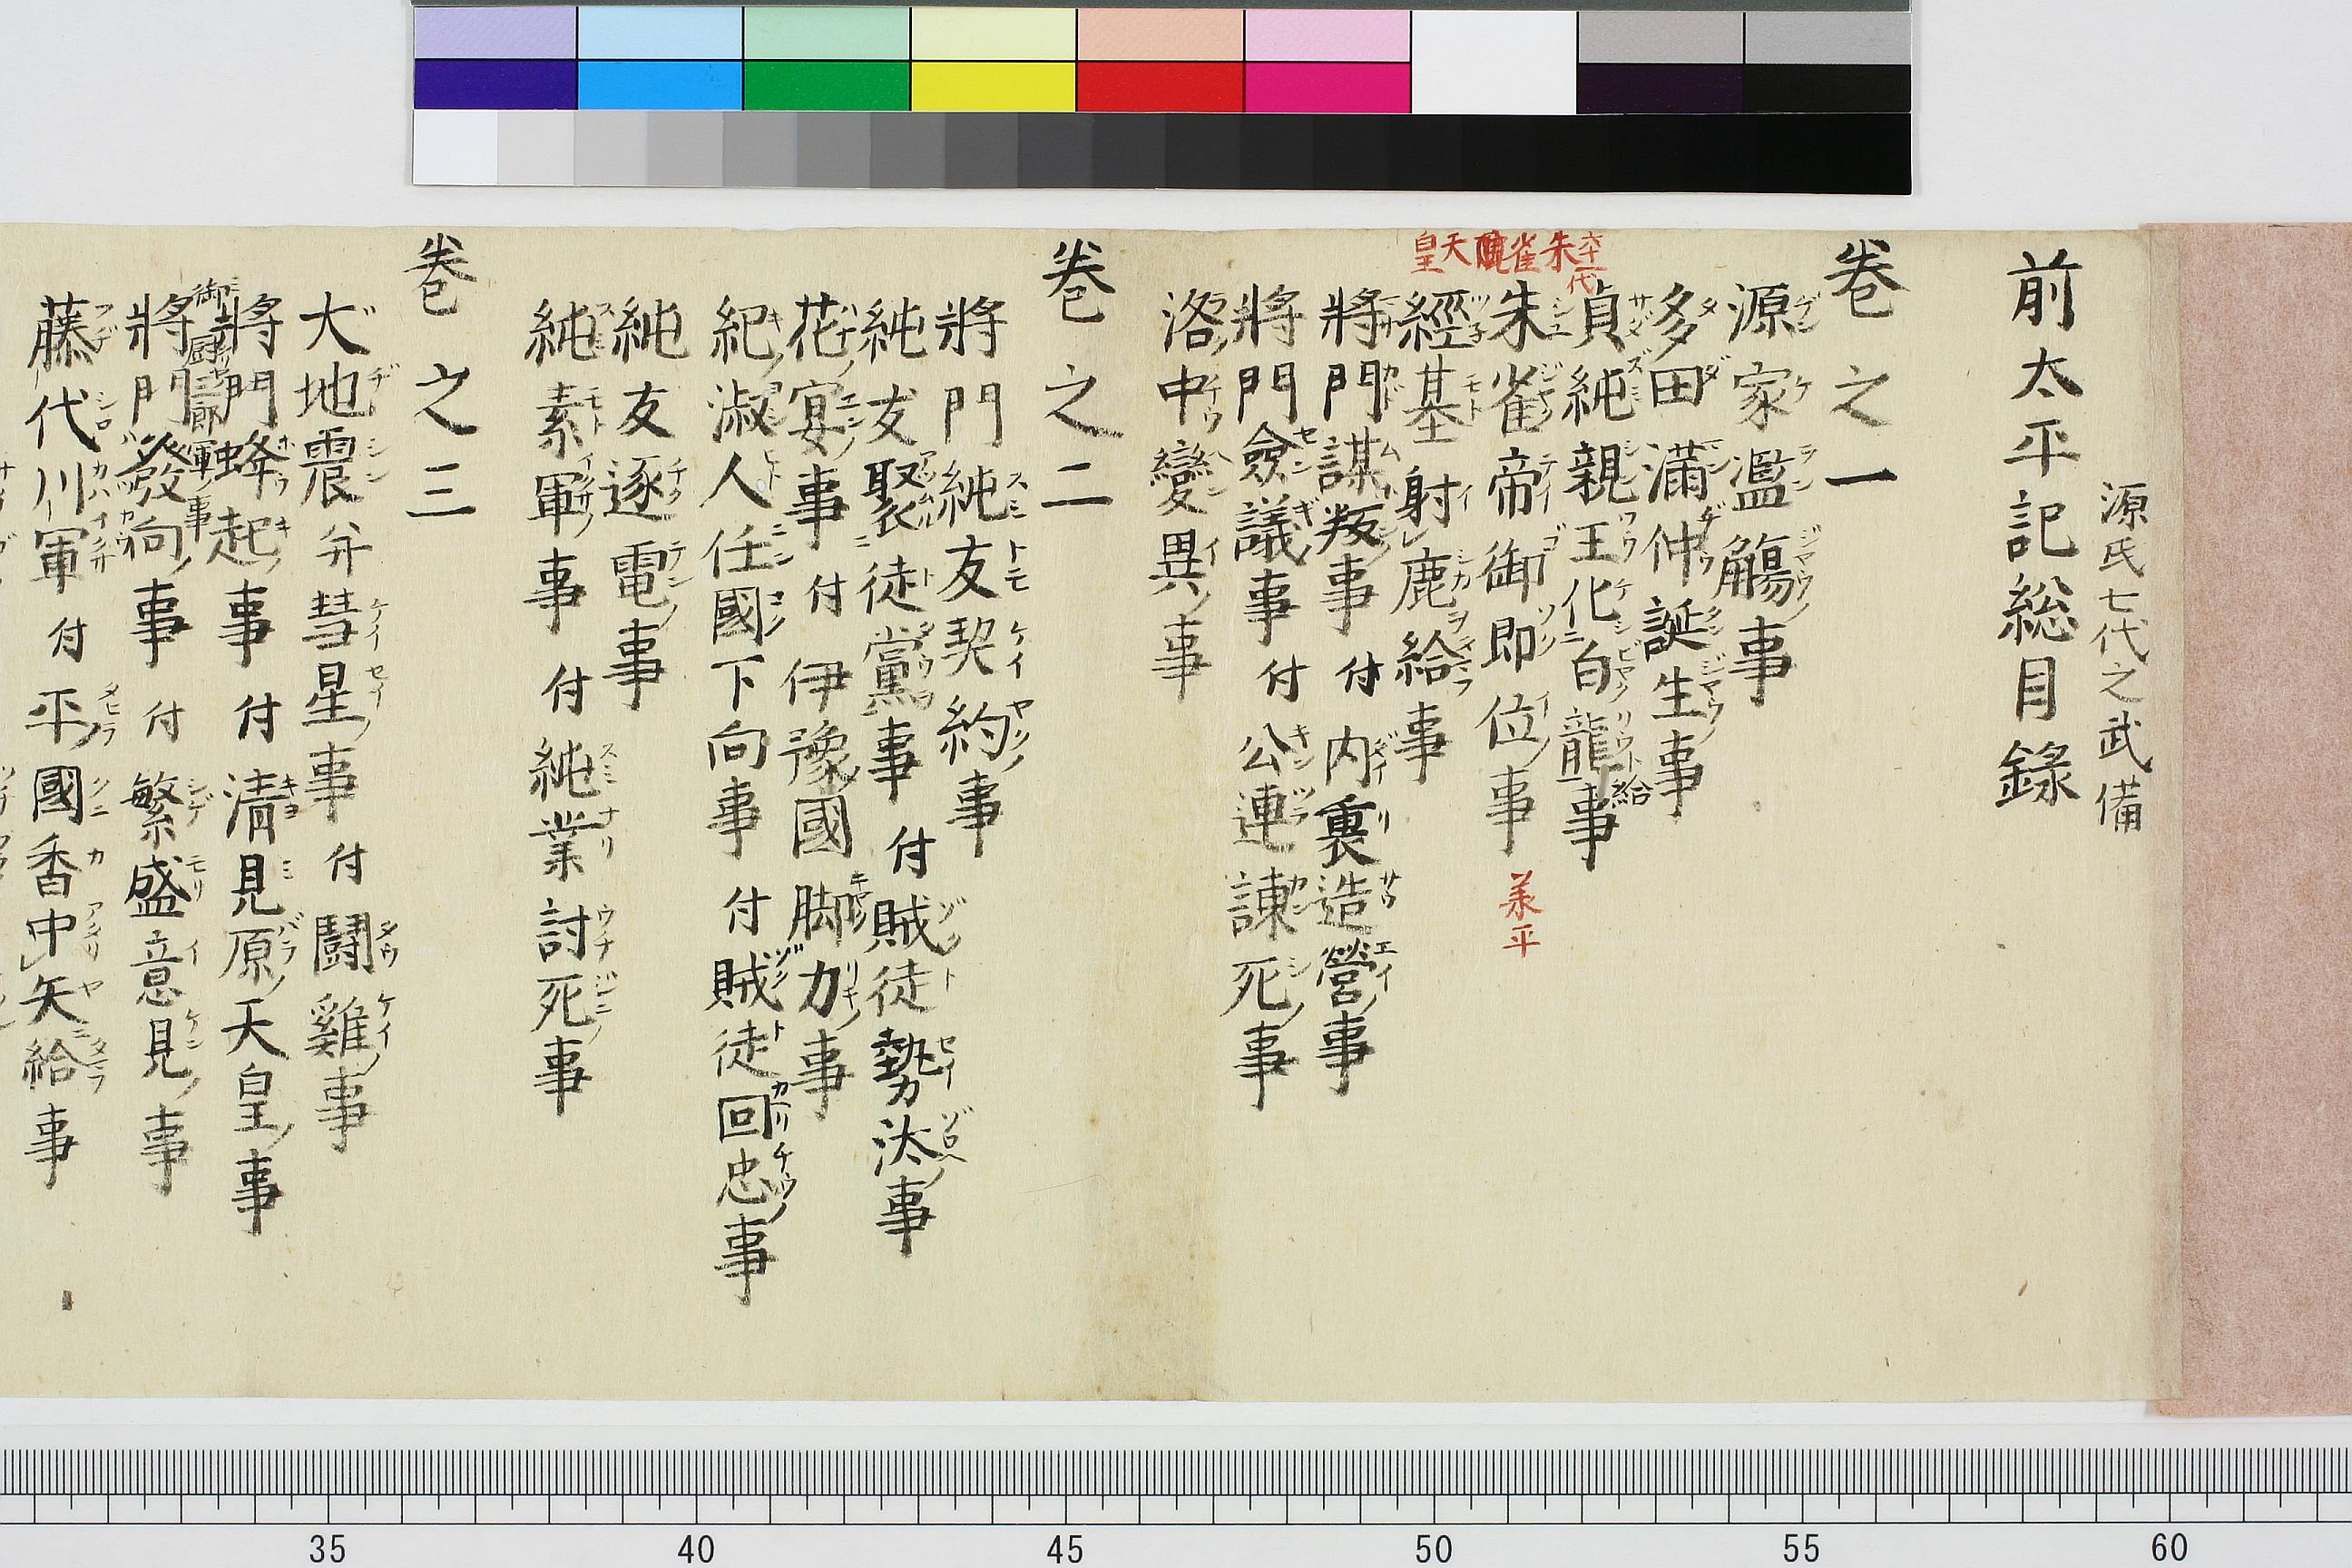 源氏七代之武備
前太平記総目録
巻之一
源家濫觴事
多田満仲誕生事
貞純親王化白龍給事
朱雀帝御即位事 羕平
六十一代
朱雀院天皇
經基射鹿給事
將門謀叛事 付 内裏造營事
將門僉議事 付 公連諌死事
洛中變異事
巻之二
將門純友契約事
純友聚徒黨事 付 賊徒勢汰事
花宴事 付 伊豫國脚力事
紀淑人任國下向事 付 賊徒回忠事
純友逐電事
純素軍事 付 純業討死事
巻之三
大地震并彗星事 付 闘雞事
將門蜂起事 付 清見原天皇事
御厨三郎軍事
將門發向事 付 繁盛意見事
藤代川軍 付 平國香中矢給事
35 40 45 50 55 60